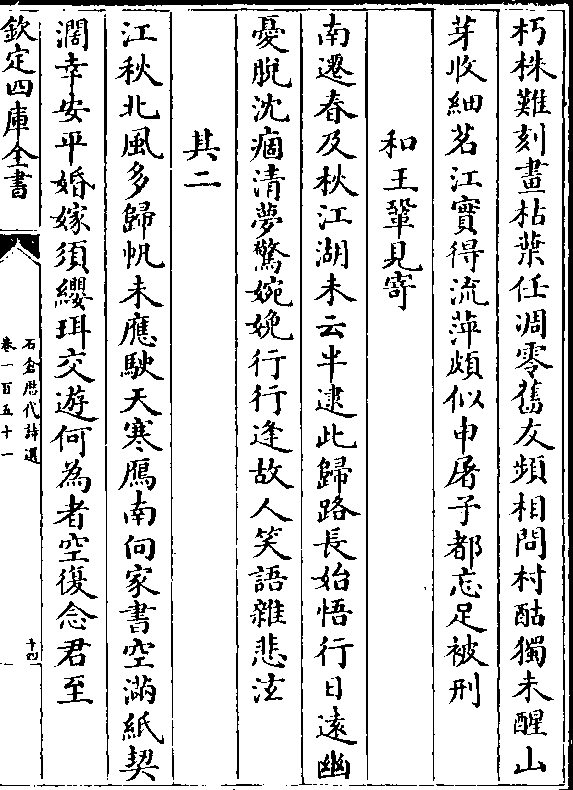 朽株難刻畫枯葉任凋零舊友頻相問村酤獨未醒山
芽收細茗江實得流萍頗似申屠子都忘足被刑
和王鞏見寄
南遷春及秋江湖未云半逮此歸路長始悟行日遠幽
憂脫沈痼清夢驚婉娩行行逢故人笑語雜悲泫
其二
江秋北風多歸帆未應駛天寒鴈南向家書空滿紙契
濶幸安平婚嫁須纓珥交遊何為者空復念君至
欽定四庫全書
石倉歷代詩選
卷一百五十一
十四